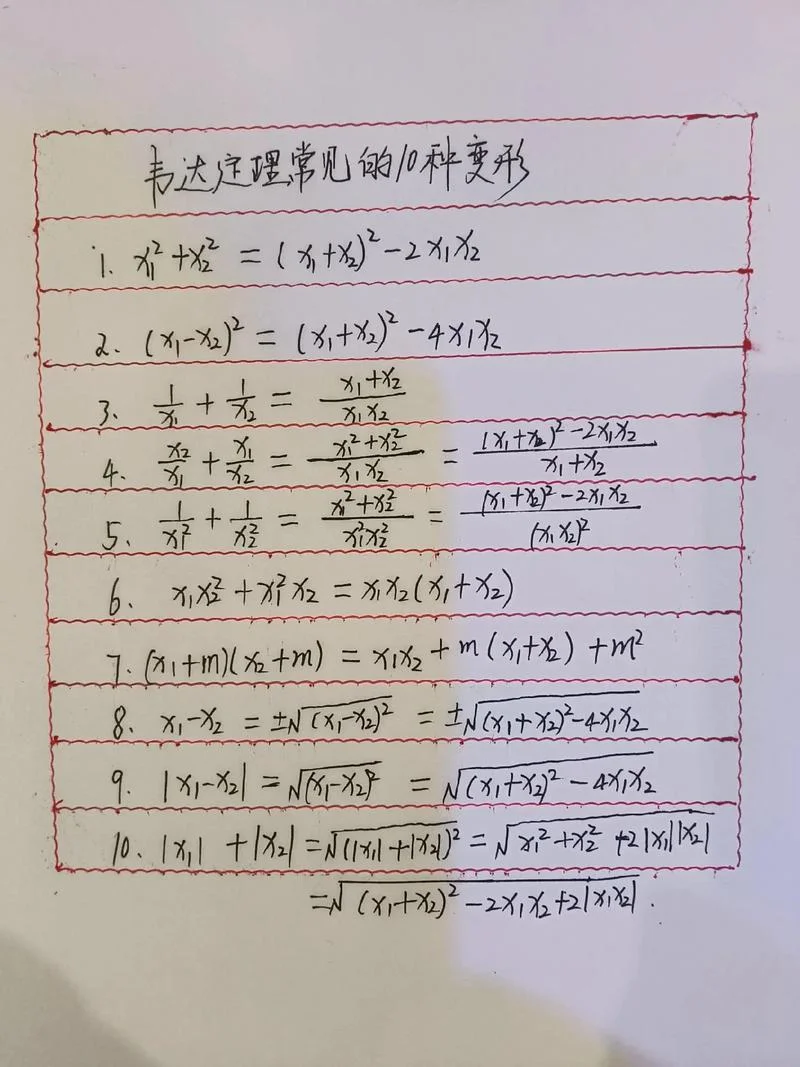 韦达定理常见的10种变形
1. x₁²+x₂² = (x₁+x₂)²-2x₁x₂
2. (x₁-x₂)² = (x₁+x₂)²-4x₁x₂
3. 1/x₁ + 1/x₂ = (x₁+x₂)/(x₁x₂)
4. x₂/x₁ + x₁/x₂ = (x₁²+x₂²)/(x₁x₂) = ((x₁+x₂)²-2x₁x₂)/(x₁+x₂)
5. 1/x₁² + 1/x₂² = (x₁²+x₂²)/(x₁²x₂²) = ((x₁+x₂)²-2x₁x₂)/(x₁x₂)²
6. x₁x₂²+x₁²x₂ = x₁x₂(x₁+x₂)
7. (x₁+m)(x₂+m) = x₁x₂+m(x₁+x₂)+m²
8. x₁-x₂ = ±√((x₁-x₂)²) = ±√((x₁+x₂)²-4x₁x₂)
9. |x₁-x₂| = √((x₁-x₂)²) = √((x₁+x₂)²-4x₁x₂)
10. |x₁|+|x₂| = √((|x₁|+|x₂|)²) = √(x₁²+x₂²+2|x₁||x₂|)
=√((x₁+x₂)²-2x₁x₂+2|x₁x₂|).